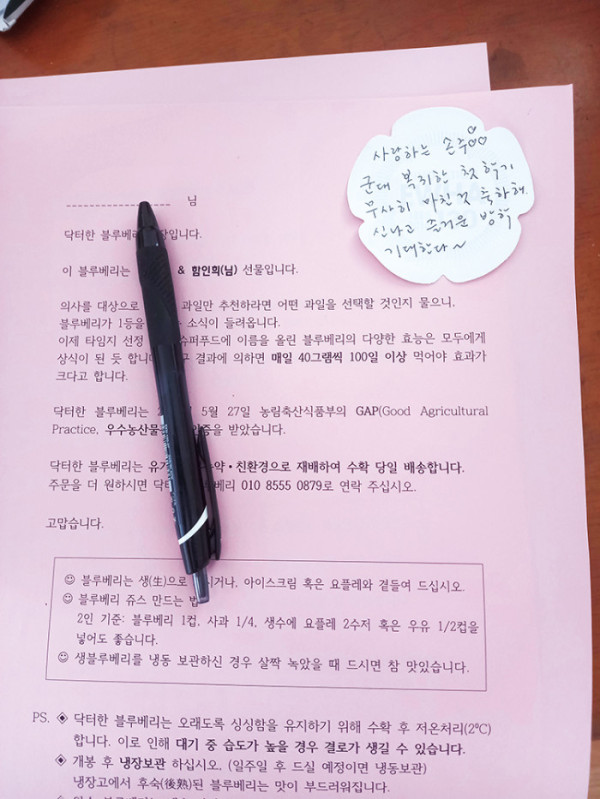 사랑하는 손주
군대 복귀한 첫 학기
무사히 마친것 축하해
신나고 즐거운 방학
기대한다~
님
닥터한 블루베리 입니다.
이 블루베리는 & 함인희(님) 선물입니다.
의사를 대상으로 과일만 추천하라면 어떤 과일을 선택할 것인지 물으니,
블루베리가 1등을 소식이 들려옵니다.
이제 타임지 선정 슈퍼푸드에 이름을 올린 블루베리의 다양한 효능은 모두에게
상식이 된 듯 합니다. 결과에 의하면 매일 40그램씩 100일 이상 먹어야 효과가
크다고 합니다.
닥터한 블루베리는 5월 27일 농림축산식품부의 GAP(Good Agricultural
Practice, 우수농산물 인증을 받았습니다.
닥터한 블루베리는 유기 농약·친환경으로 재배하여 수확 당일 배송합니다.
주문을 더 원하시면 닥터 베리 010 8555 0879로 연락 주십시오.
고맙습니다.
☺ 블루베리는 생(生)으로 시거나, 아이스크림 혹은 요플레와 곁들여 드십시오.
☺ 블루베리 쥬스 만드는 법
2인 기준: 블루베리 1컵, 사과 1/4, 생수에 요플레 2수저 혹은 우유 1/2컵을
넣어도 좋습니다.
☺ 생블루베리를 냉동 보관하신 경우 살짝 녹았을 때 드시면 참 맛있습니다.
PS. ◈ 닥터한 블루베리는 오래도록 싱싱함을 유지하기 위해 수확 후 저온처리(2℃)
합니다. 이로 인해 대기 중 습도가 높을 경우 결로가 생길 수 있습니다.
◈ 개봉 후 냉장보관 하십시오. (일주일 후 드실 예정이면 냉동보관)
냉장고에서 후숙(後熟)된 블루베리는 맛이 부드러워집니다.